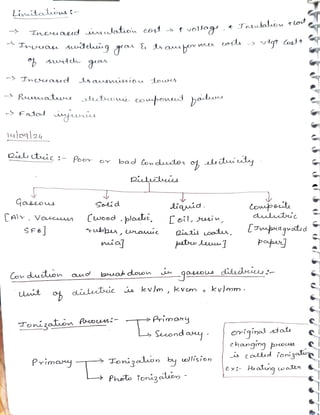 Limitations :-
→ Increased insulation cost → ↑ voltage, ↑ Insulation ↑ cost
→ Increase switching gear & transformer costs →
of switch gear
→ Increased transmission towers
→ Premature electronic component failure
→ Fatal injuries
14/09/24
Dielectric :- Poor or bad Conductor of electricity.
Dielectrics
Gaseous Solid liquid. Composite
dielectric
[Air, Vacuum [wood, plastic, [oil, resin, [Impregnated
SF6] rubber, ceramic Distil water, paper]
mica] petroleum]
Conduction and breakdown in gaseous dielectrics:-
Unit of dielectric is kv/m, kv/cm, kv/mm.
Ionization Process:- → Primary
→ Secondary.
Primary → Ionization by collision
→ Photo ionization -
original state
changing process
is called ionization
Ex:- Heating water